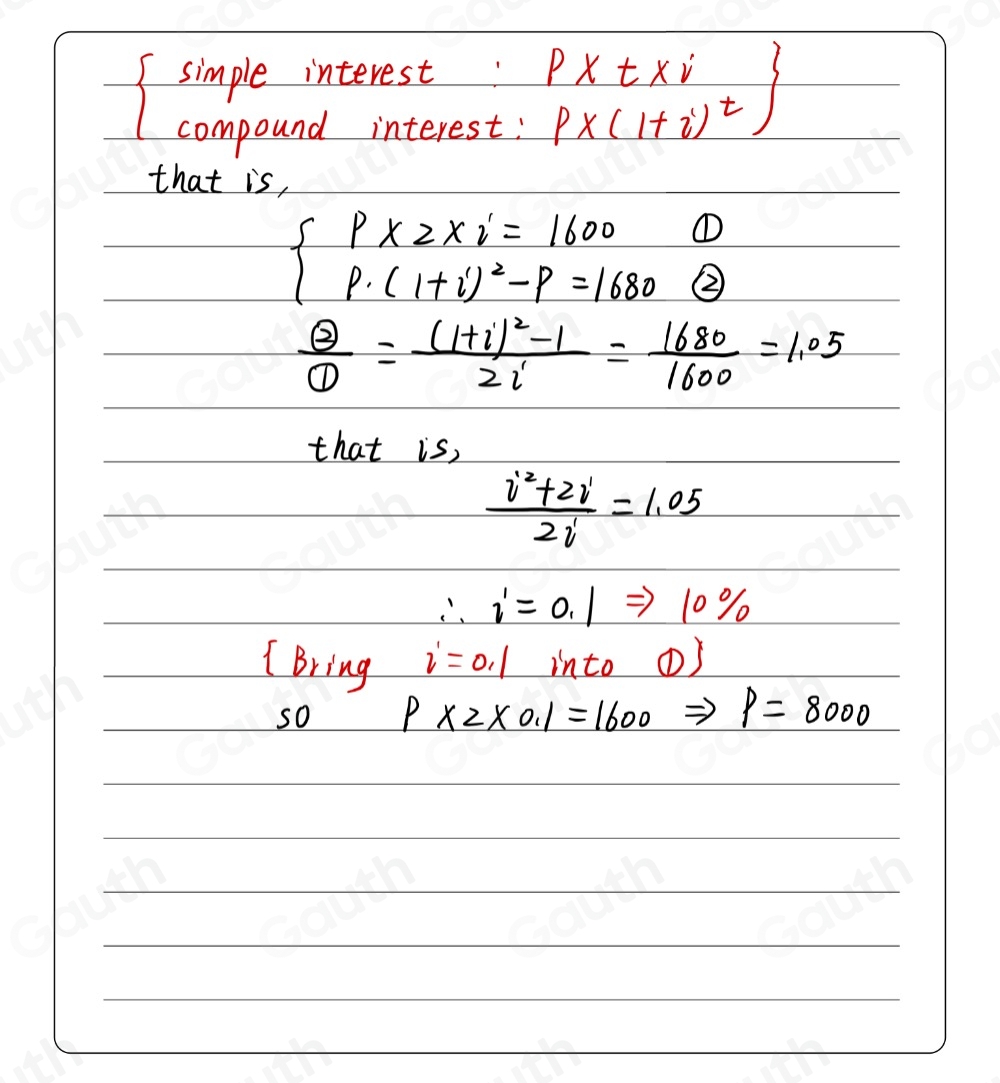 { simple interest : P × t × i }
{ compound interest: P × (1+i)^t }
that is,
{ P × 2 × i = 1600 ①
{ P·(1+i)² - P = 1680 ②
②/① = ((1+i)² - 1)/(2i) = 1680/1600 = 1.05
that is,
(i² + 2i)/(2i) = 1.05
∴ i = 0.1 ⇒ 10%
{Bring i = 0.1 into ①}
so P × 2 × 0.1 = 1600 ⇒ P = 8000
Gauth